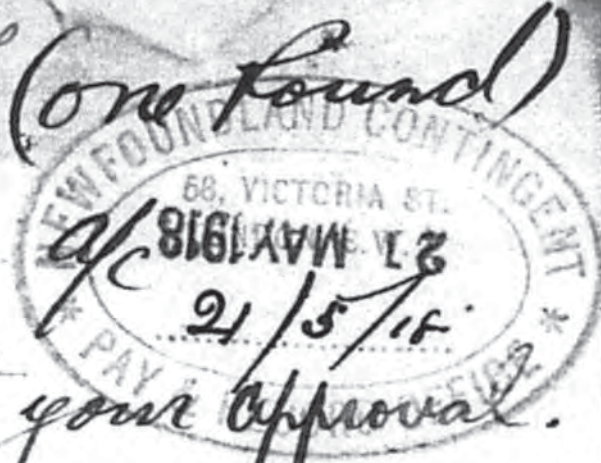 (one Pound)
NEWFOUNDLAND CONTINGENT
58, VICTORIA ST.
a/c 21 MAY 1918
21/5/18
* PAY & OFFICE *
your approval.